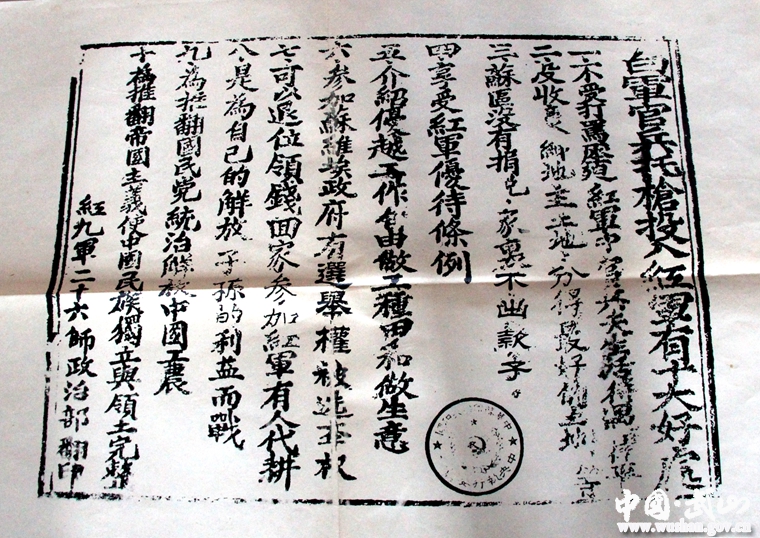 白軍官兵托槍投入紅軍有十大好處
一、不受打罵壓迫 紅軍中官兵夫生活待遇
二、沒收 地主土地、分得最好的土地
三、蘇區沒有捐 家裏不出款子
四、享受紅軍優待條例
五、介紹優越工作自由做工種田和做生意
六、參加蘇維埃政府有選舉權被選舉权
七、可以退位領錢回家參加紅軍有人代耕
八、是為自己的解放 子孫的利益而戰
九、為推翻國民党統治 中國工農
十、為推翻帝國主義使中國民族獨立與領土完整
紅九軍二十六師政治部翻印
中国·武山
www.wushan.gov.cn